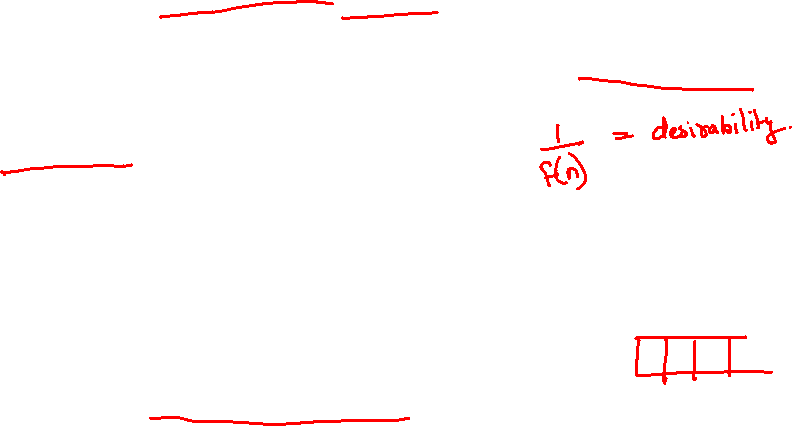 1/f(n) = desirability.